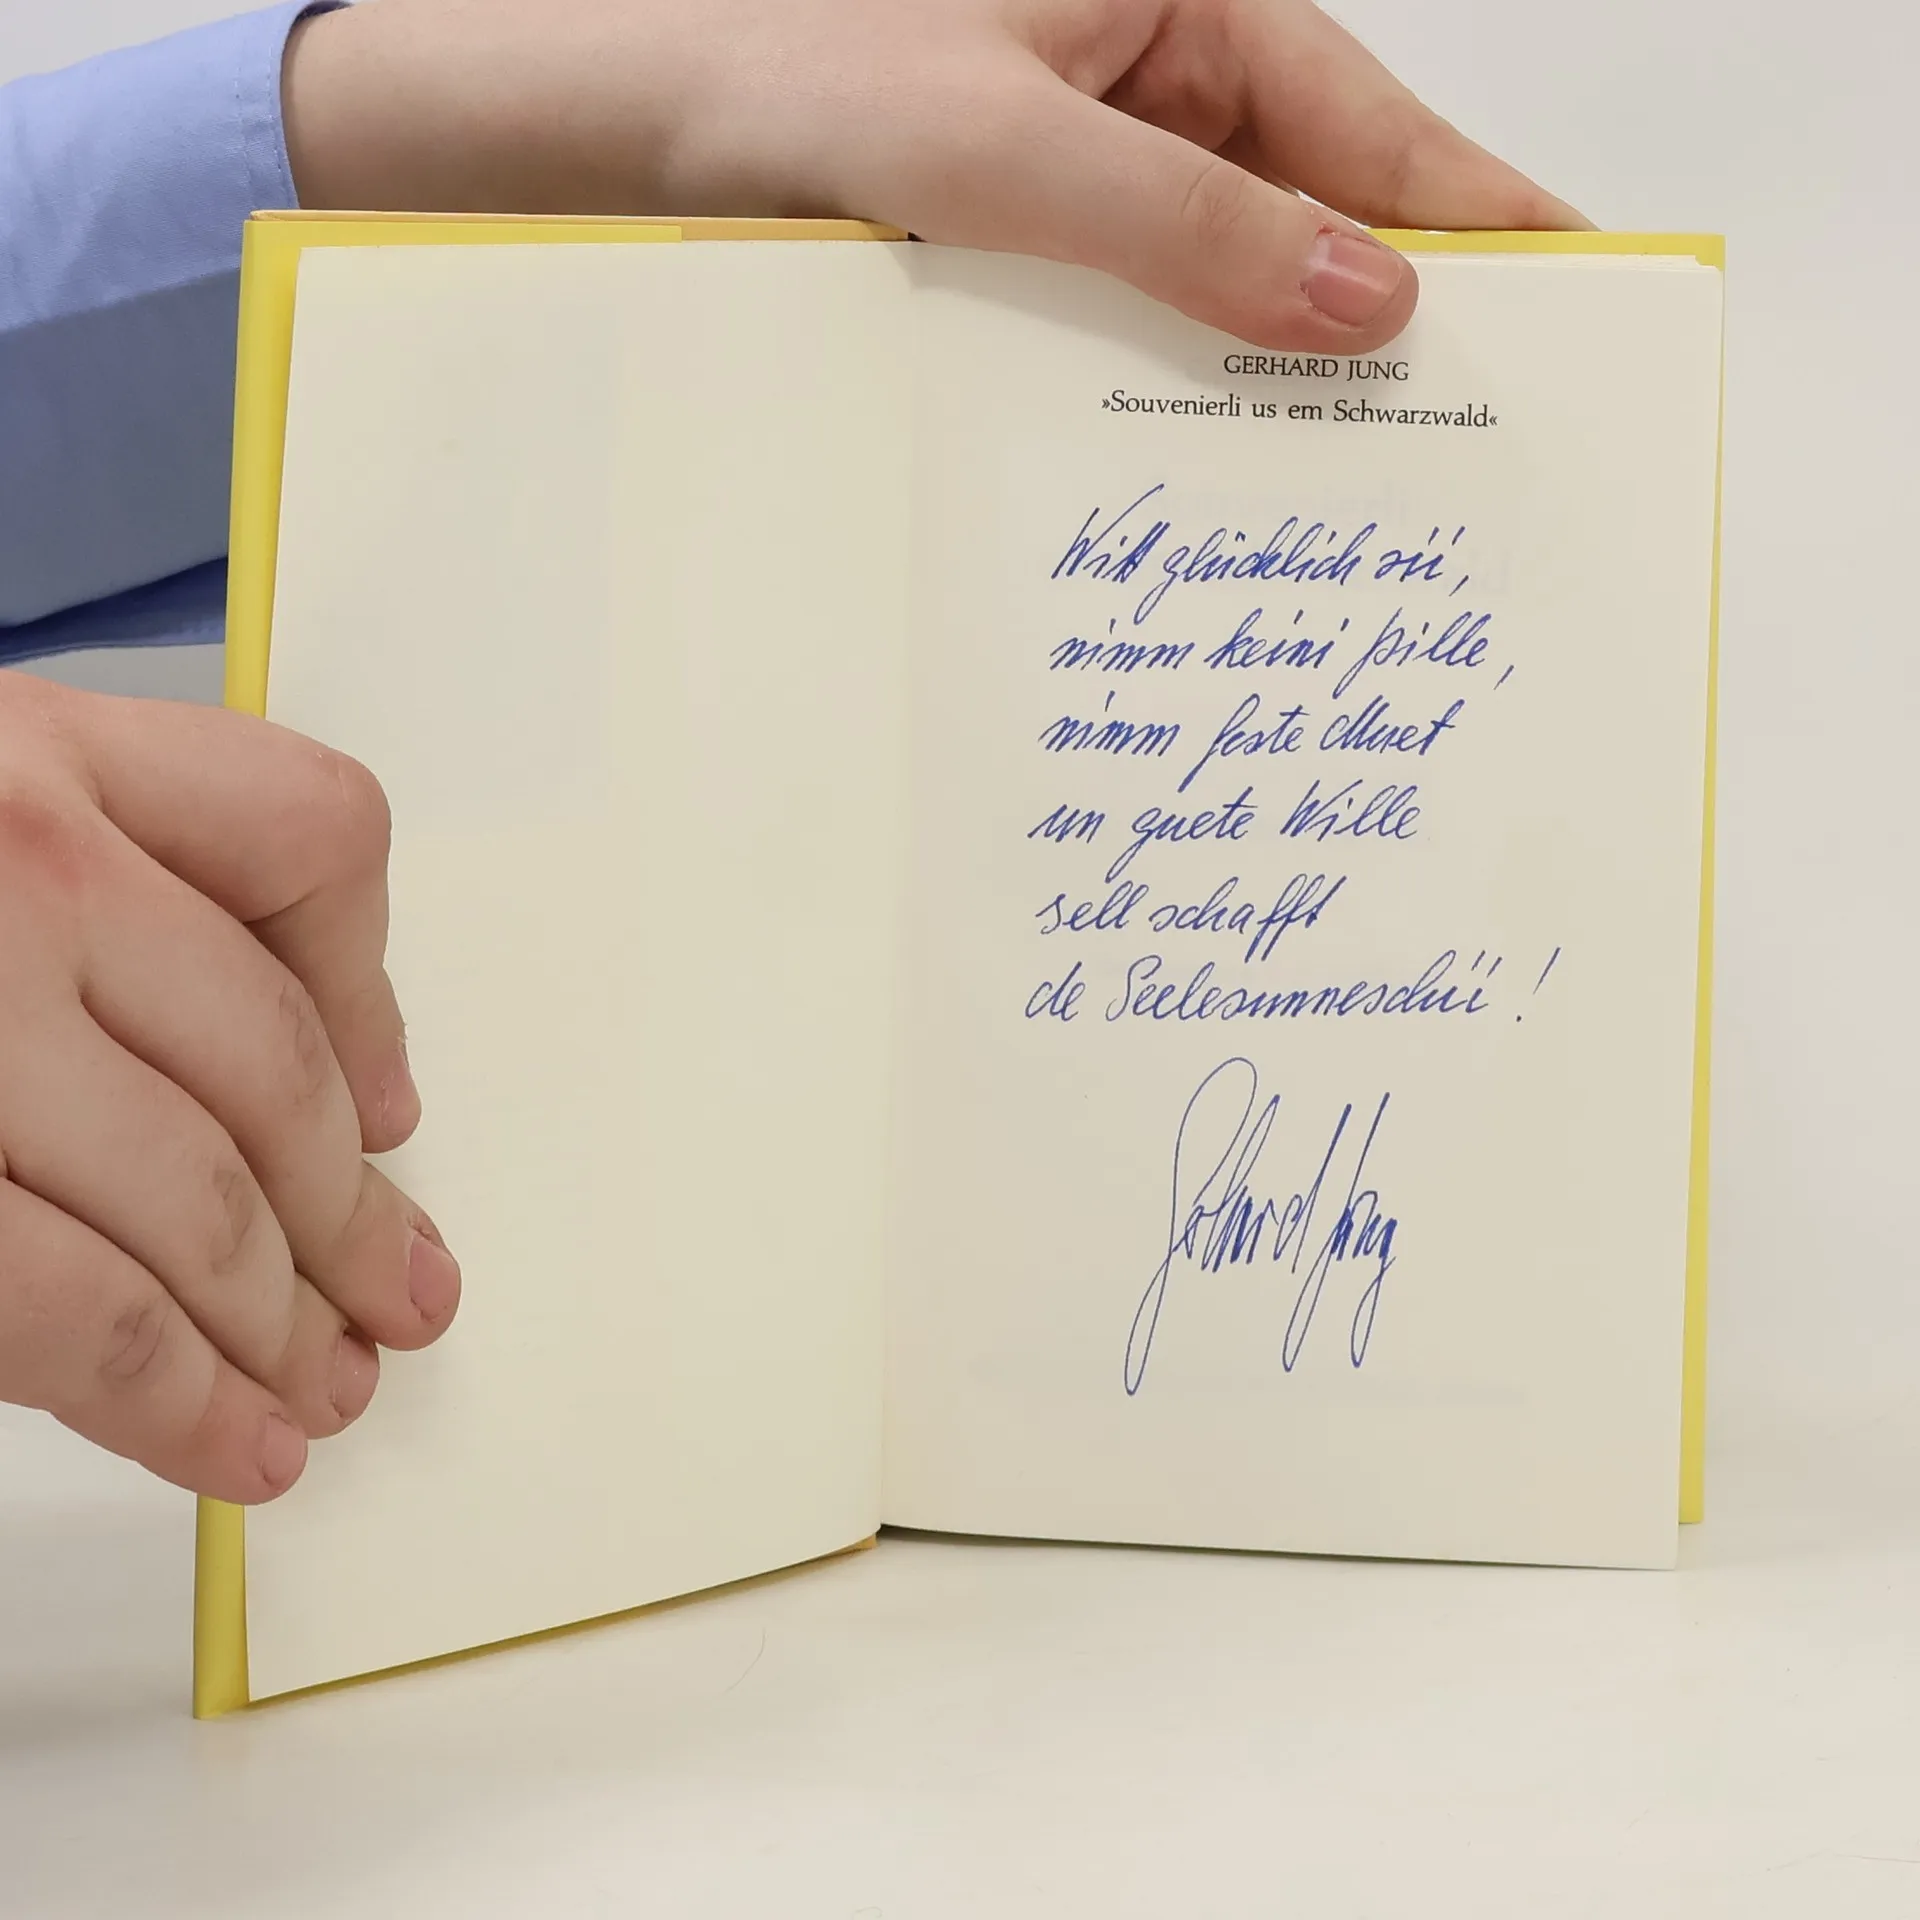 GERHARD JUNG
»Souvenierli us em Schwarzwald«
Witt glücklich sii,
nimm keini Pille,
nimm feste Muet
un guete Wille
sell schafft
de Seelesunneschii !
Gerhard Jung